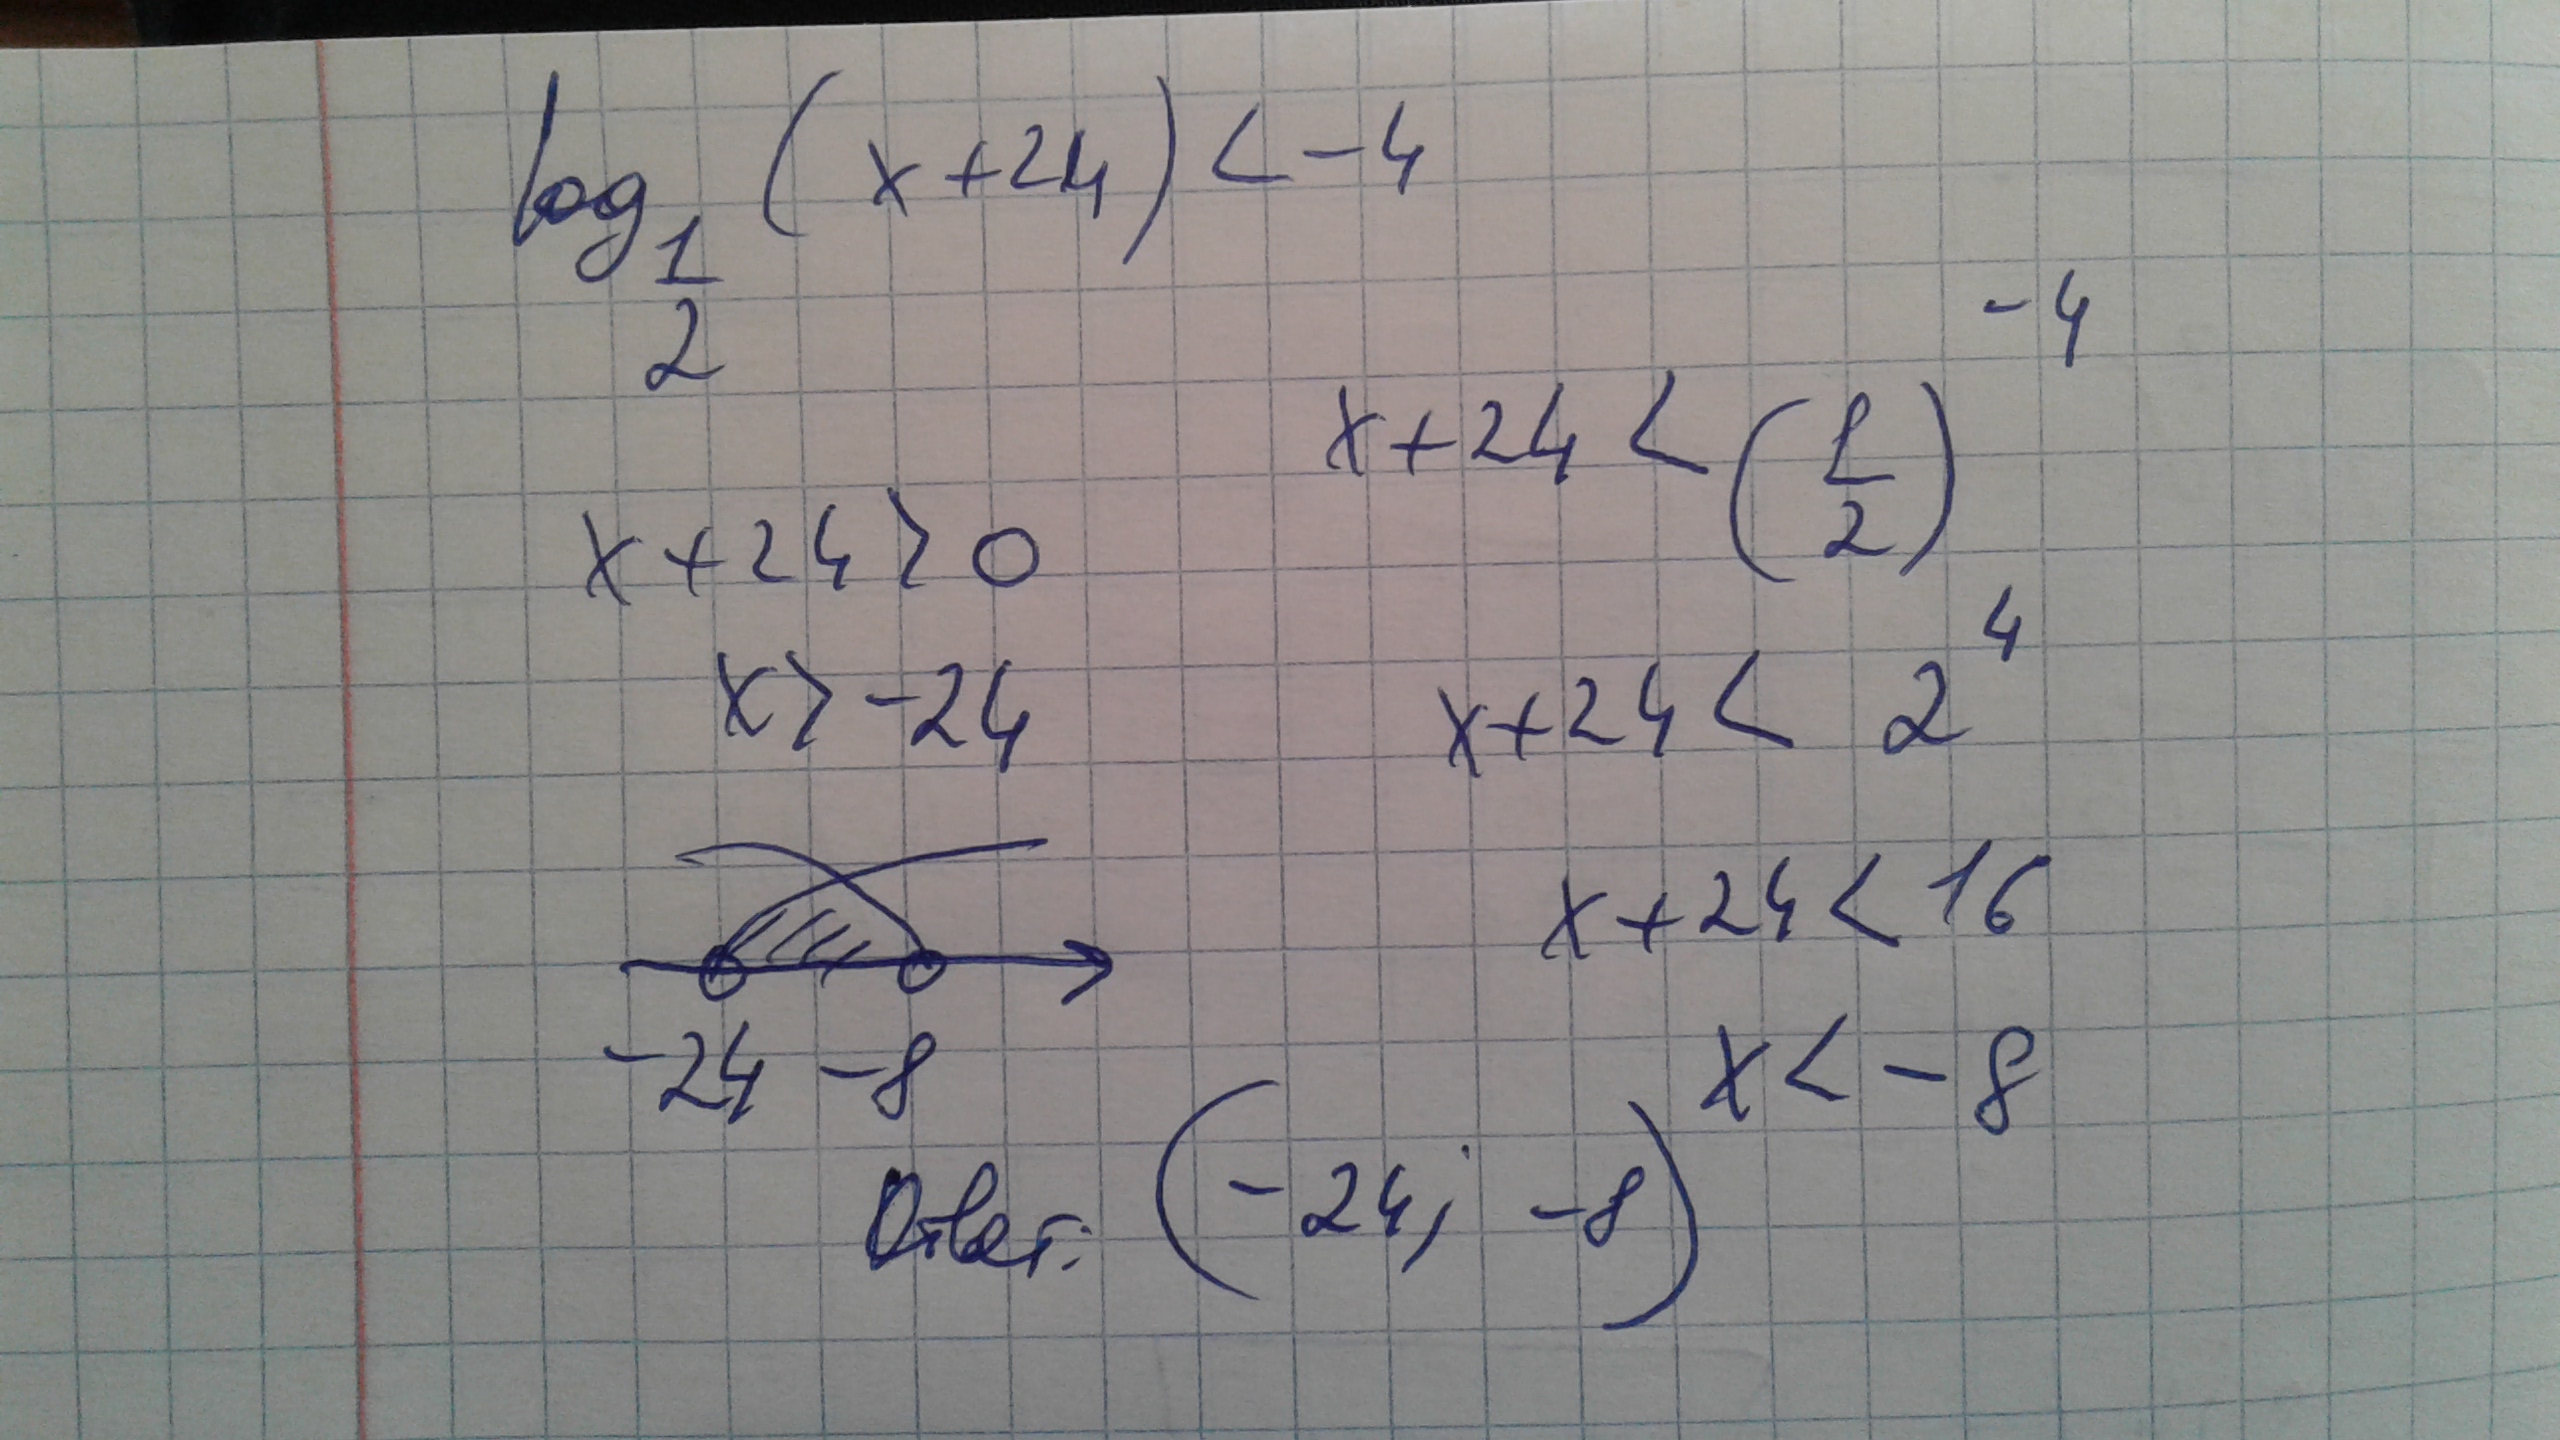 log_{1/2} (x+24) < -4
x+24 < (1/2)^{-4}
x+24 > 0
x > -24
x+24 < 2^4
x+24 < 16
x < -8
-24 -8
Ответ: (-24; -8)